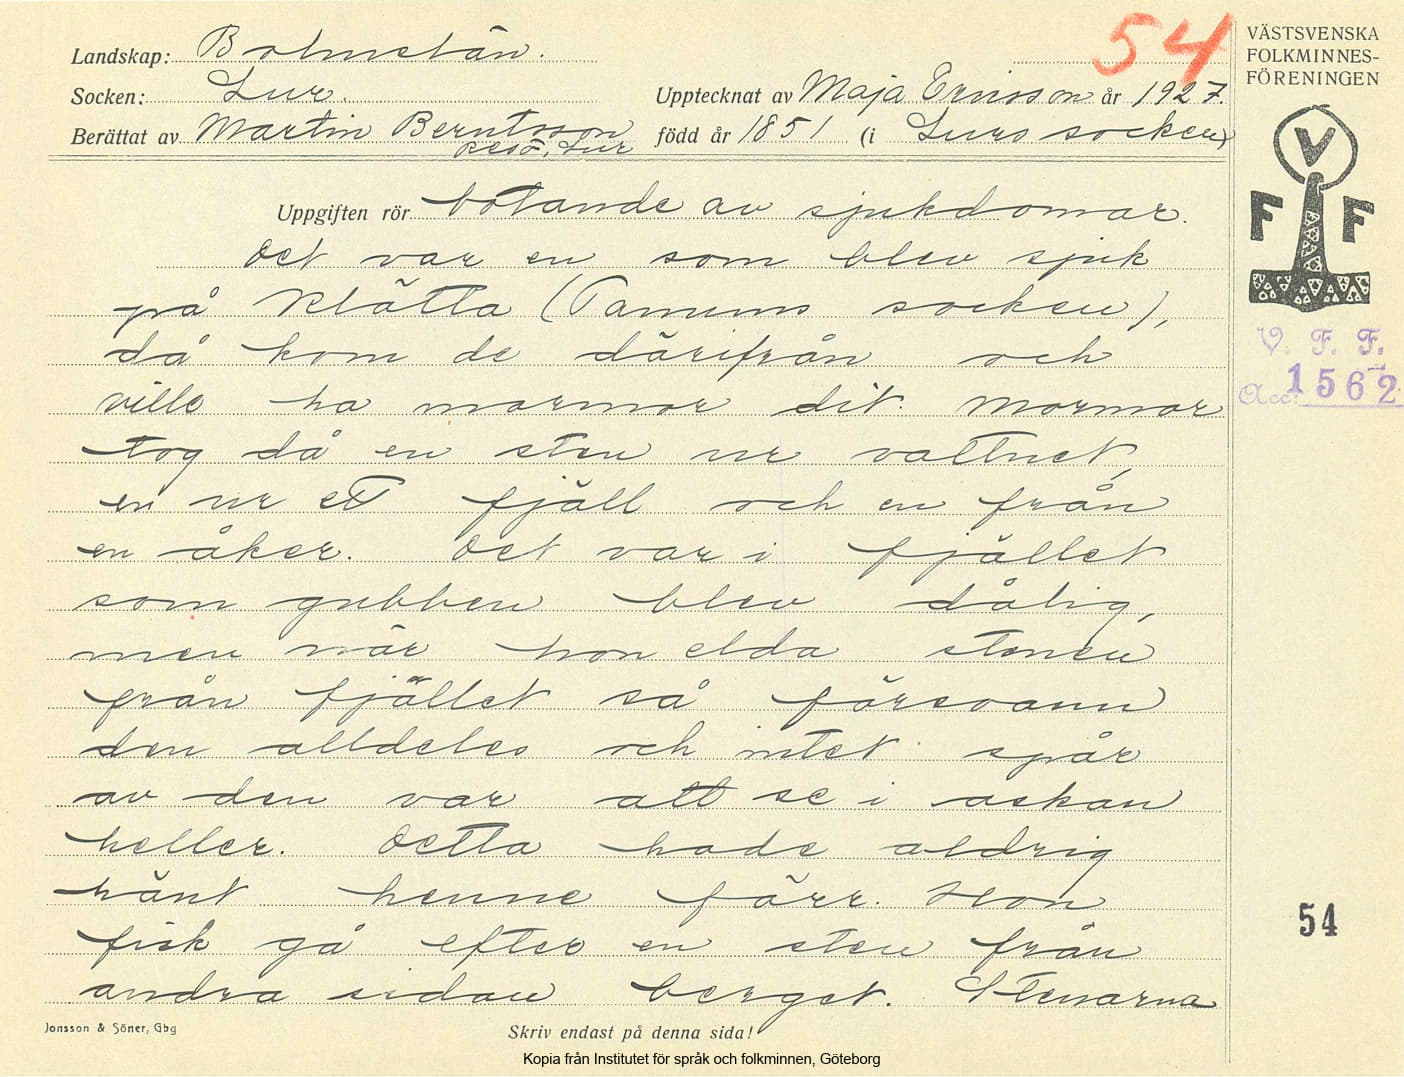 Landskap: Bohuslän.
54
VÄSTSVENSKA
FOLKMINNES-
FÖRENINGEN
Socken: Lur.
Upptecknat av Maja Ericsson år 1927.
Berättat av Martin Berntsson född år 1851 (i Lurs socken)
Resö, Lur
V
F F
Uppgiften rör botande av sjukdomar.
Det var en som blev sjuk
på Klätta (Tanums socken),
då kom de därifrån och
ville ha mormor dit. Mormor
tog då en sten ur vattnet,
en ur ett fjäll och en från
en åker. Det var i fjället
som gubben blev dålig,
men när hon elda stenen
från fjället så försvann
den alldeles och intet spår
av den var att se i askan
heller. Detta hade aldrig
hänt henne förr. Hon
fick gå efter en sten från
andra sidan berget. Stenarna
V. F. F.
Acc: 1562
54
Jonsson & Söner, Gbg
Skriv endast på denna sida!
Kopia från Institutet för språk och folkminnen, Göteborg